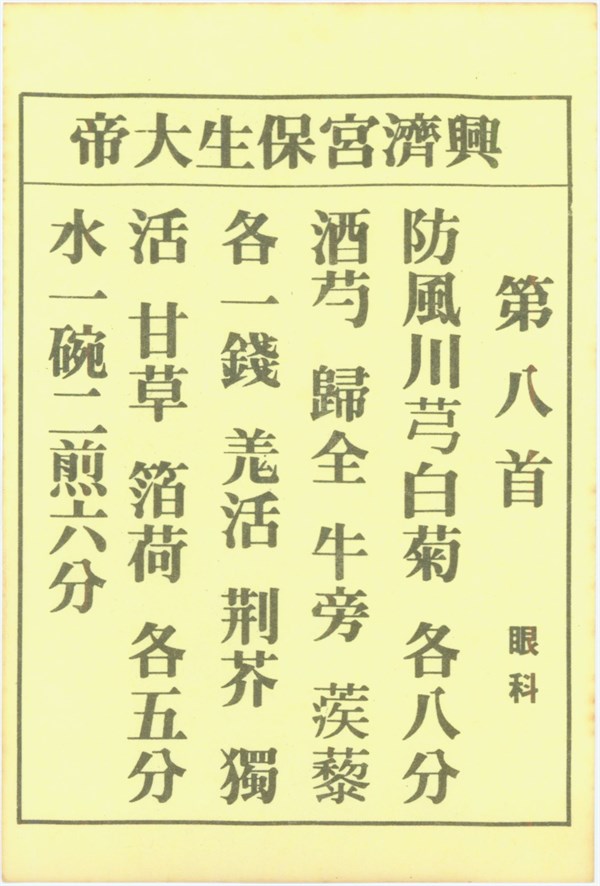 興濟宮保生大帝
第八首 眼科
防風川芎白菊 各八分
酒芍 歸全 牛旁 蒺藜
各一錢 羌活 荆芥 獨
活 甘草 箔荷 各五分
水一碗二煎六分